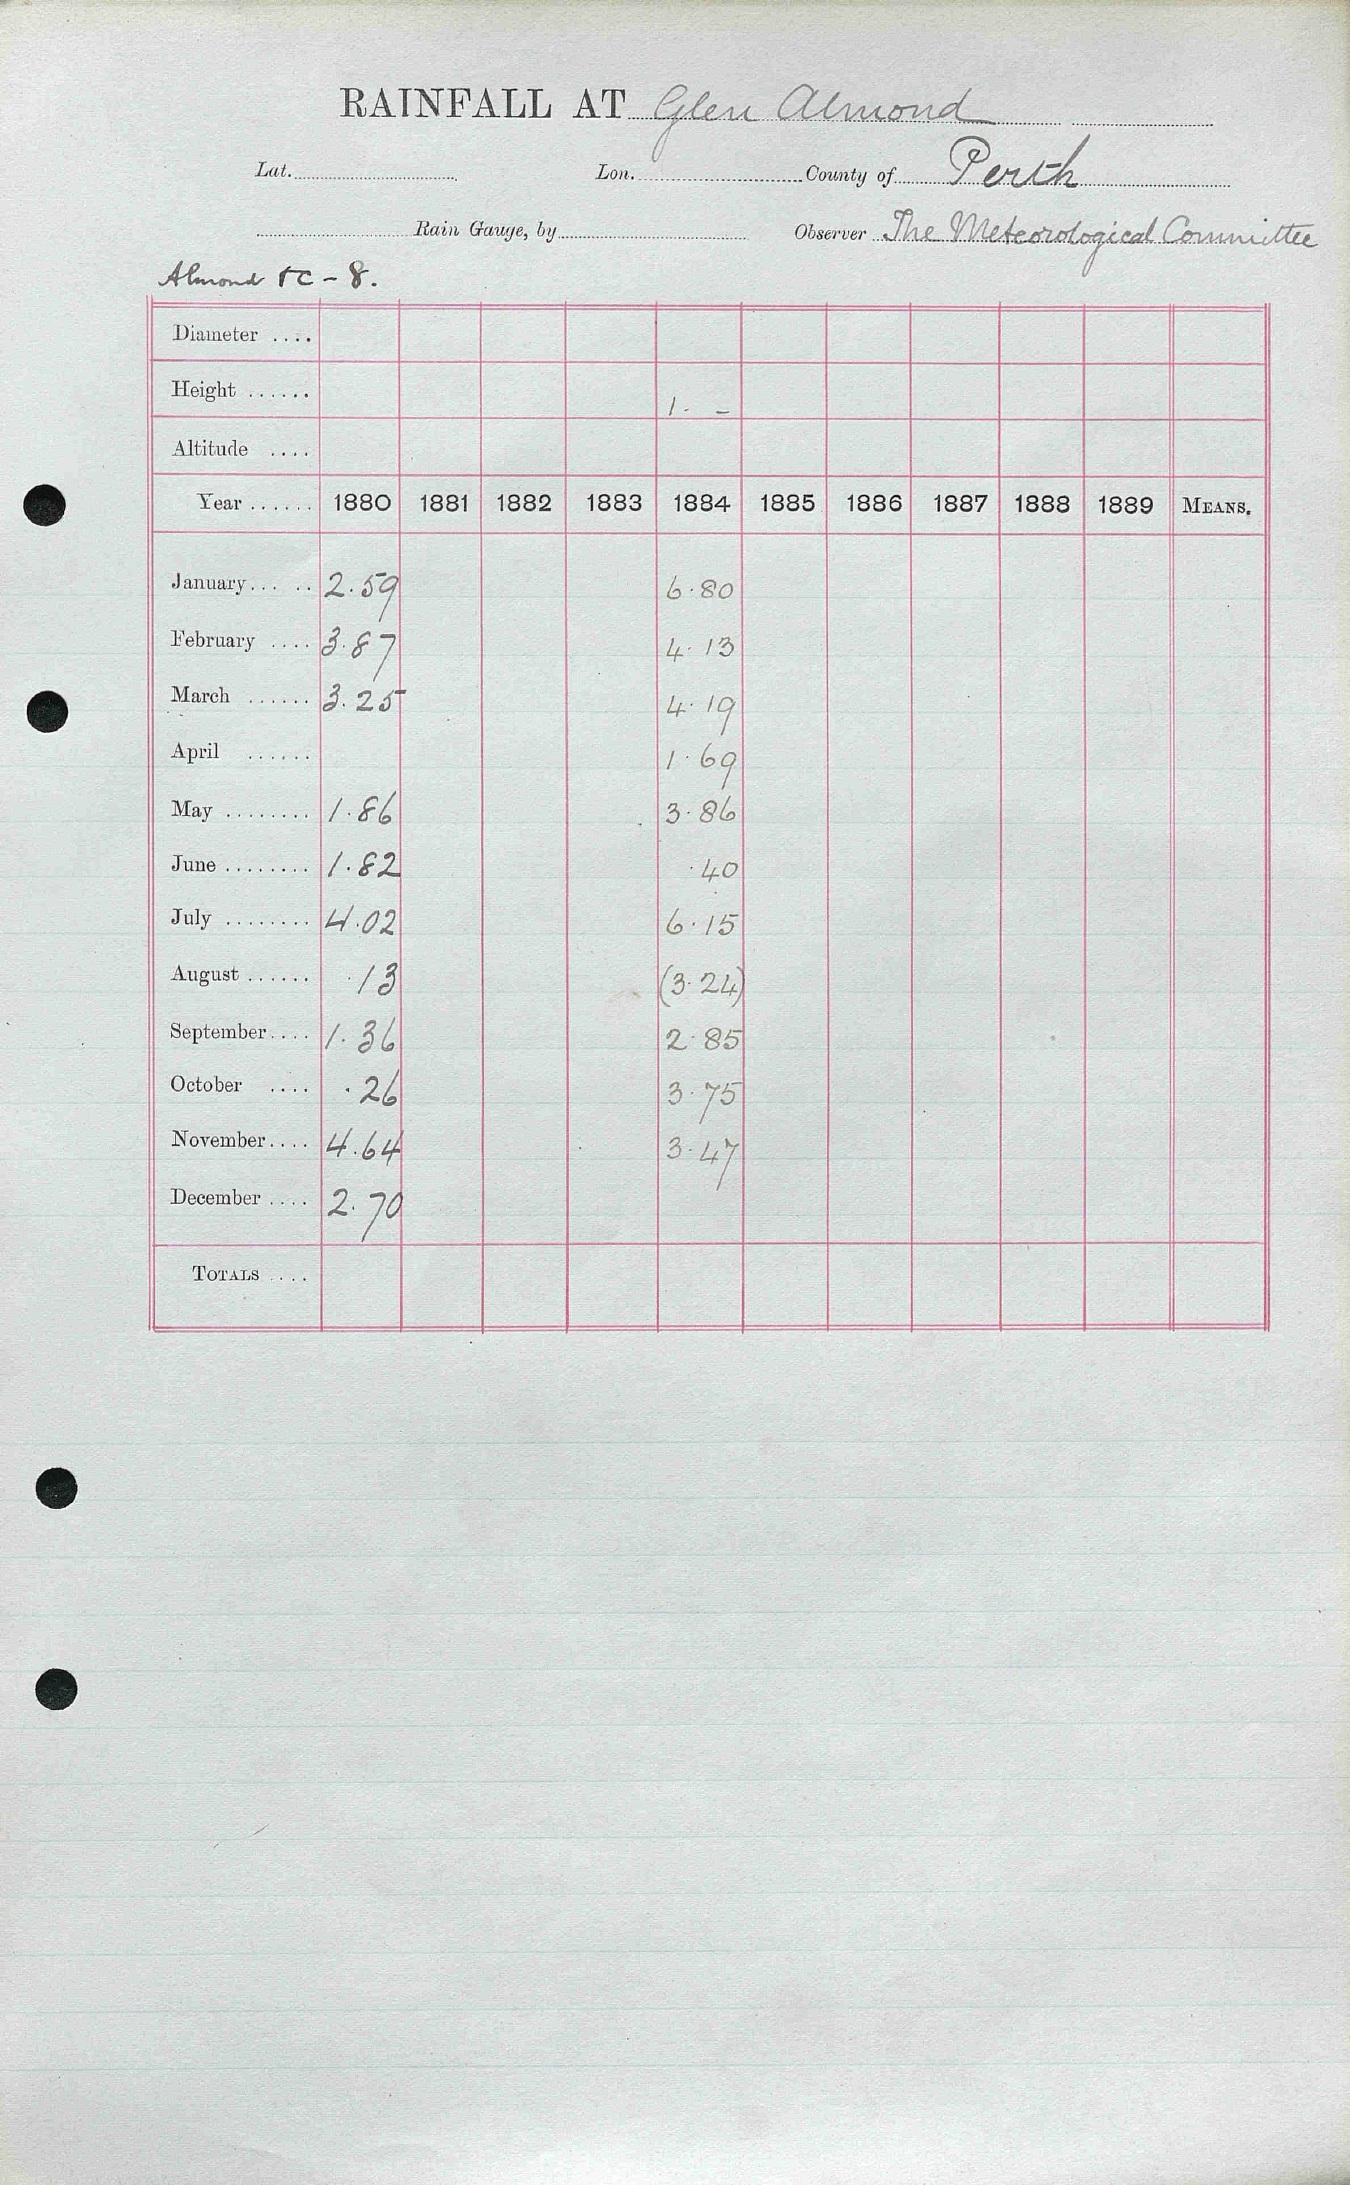 RAINFALL AT Glen Almond
Lat. Lon. County of Perth
Rain Gauge, by Observer The Meteorological Committee
Almond - 8.
Diameter ....
Height ...... 1. -
Altitude ....
Year ...... 1880 1881 1882 1883 1884 1885 1886 1887 1888 1889 MEANS.
January... .. 2.59 6.80
February .... 3.87 4.13
March ...... 3.25 4.19
April ...... 1.69
May ........ 1.86 3.86
June ........ 1.82 .40
July ........ 4.02 6.15
August ...... .13 (3.24)
September.... 1.36 2.85
October .... .26 3.75
November.... 4.64 3.47
December .... 2.70
TOTALS ....